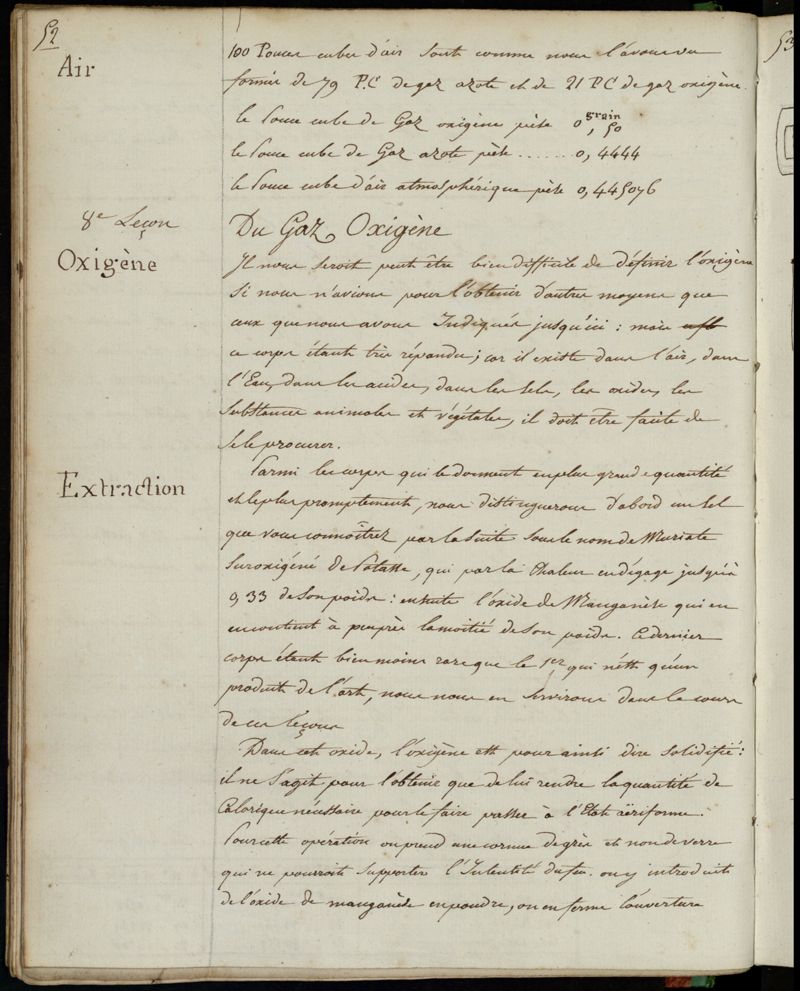 52
Air
100 Pouces cubes d'air sont comme nous l'avons vu
formés de 79 P.C de gaz azote et de 21 P.C de gaz oxigène.
le Pouce cube de Gaz oxigène pèse 0 grain, 50
le Pouce cube de Gaz azote pèse ....... 0, 4444
le Pouce cube d'air atmosphérique pèse 0, 445076
8e Leçon
Du Gaz Oxigène
Oxigène
Il nous seroit peut être bien difficile de définir l'oxigène
si nous n'avions pour l'obtenir d'autres moyens que
ceux que nous avons Indiqués jusqu'ici : mais
ce corps étant très répandu ; car il existe dans l'air, dans
l'Eau, dans les acides, dans les sels, les oxides, les
substances animales et végétales, il doit être facile de
se le procurer.
Extraction
Parmi les corps qui le donnent en plus grande quantité
et le plus promptement, nous distinguerons d'abord un sel
que vous connoîtrez par la suite sous le nom de Muriate
suroxigéné de Potasse, qui par la Chaleur en dégage jusqu'à
0,33 de son poids : ensuite l'oxide de Manganèse qui en
en contient à peuprès la moitié de son poids. Ce dernier
corps étant bien moins rare que le 1er qui n'est qu'un
produit de l'art, nous nous en servirons dans le cours
de ces leçons
Dans cet oxide, l'oxigène est pour ainsi dire solidifié :
il ne s'agit pour l'obtenir que de lui rendre la quantité de
Calorique nécessaire pour le faire passer à l'Etat aëriforme.
Pour cette opération on prend une cornue de grès et non de verre
qui ne pourroit supporter l'Intensité du feu. on y introduit
de l'oxide de manganèse en poudre, on en ferme l'ouverture
53